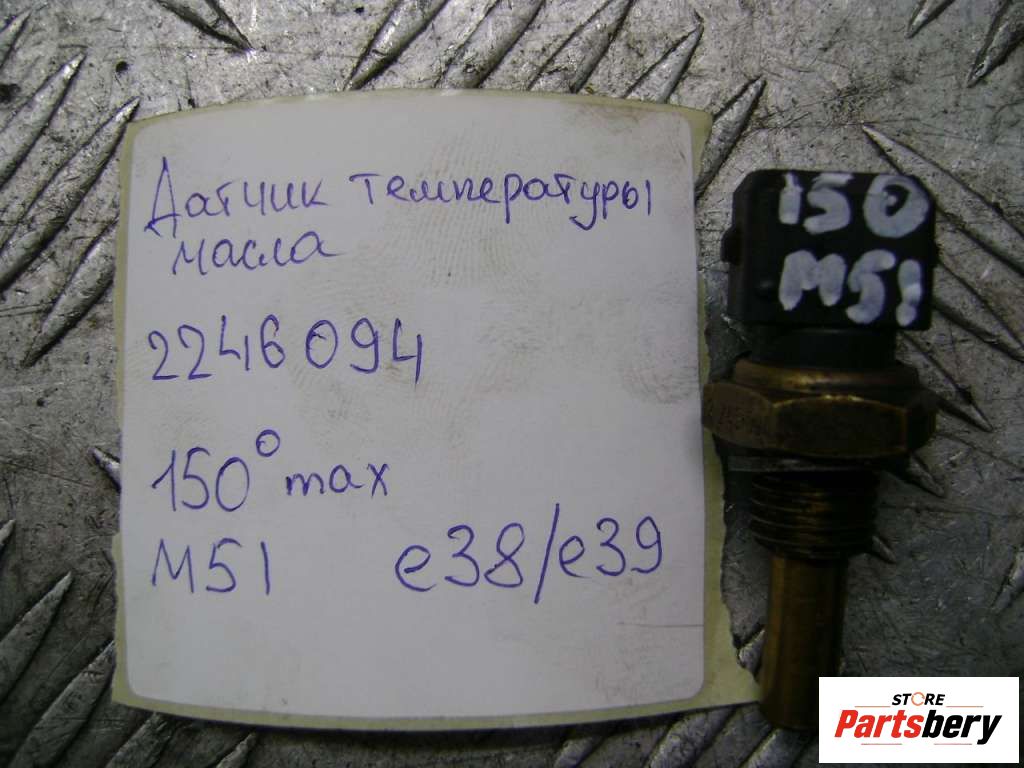 Датчик температуры
масла
2246094
150° max
M51 e38/e39
150
M51
STORE
Partsbery